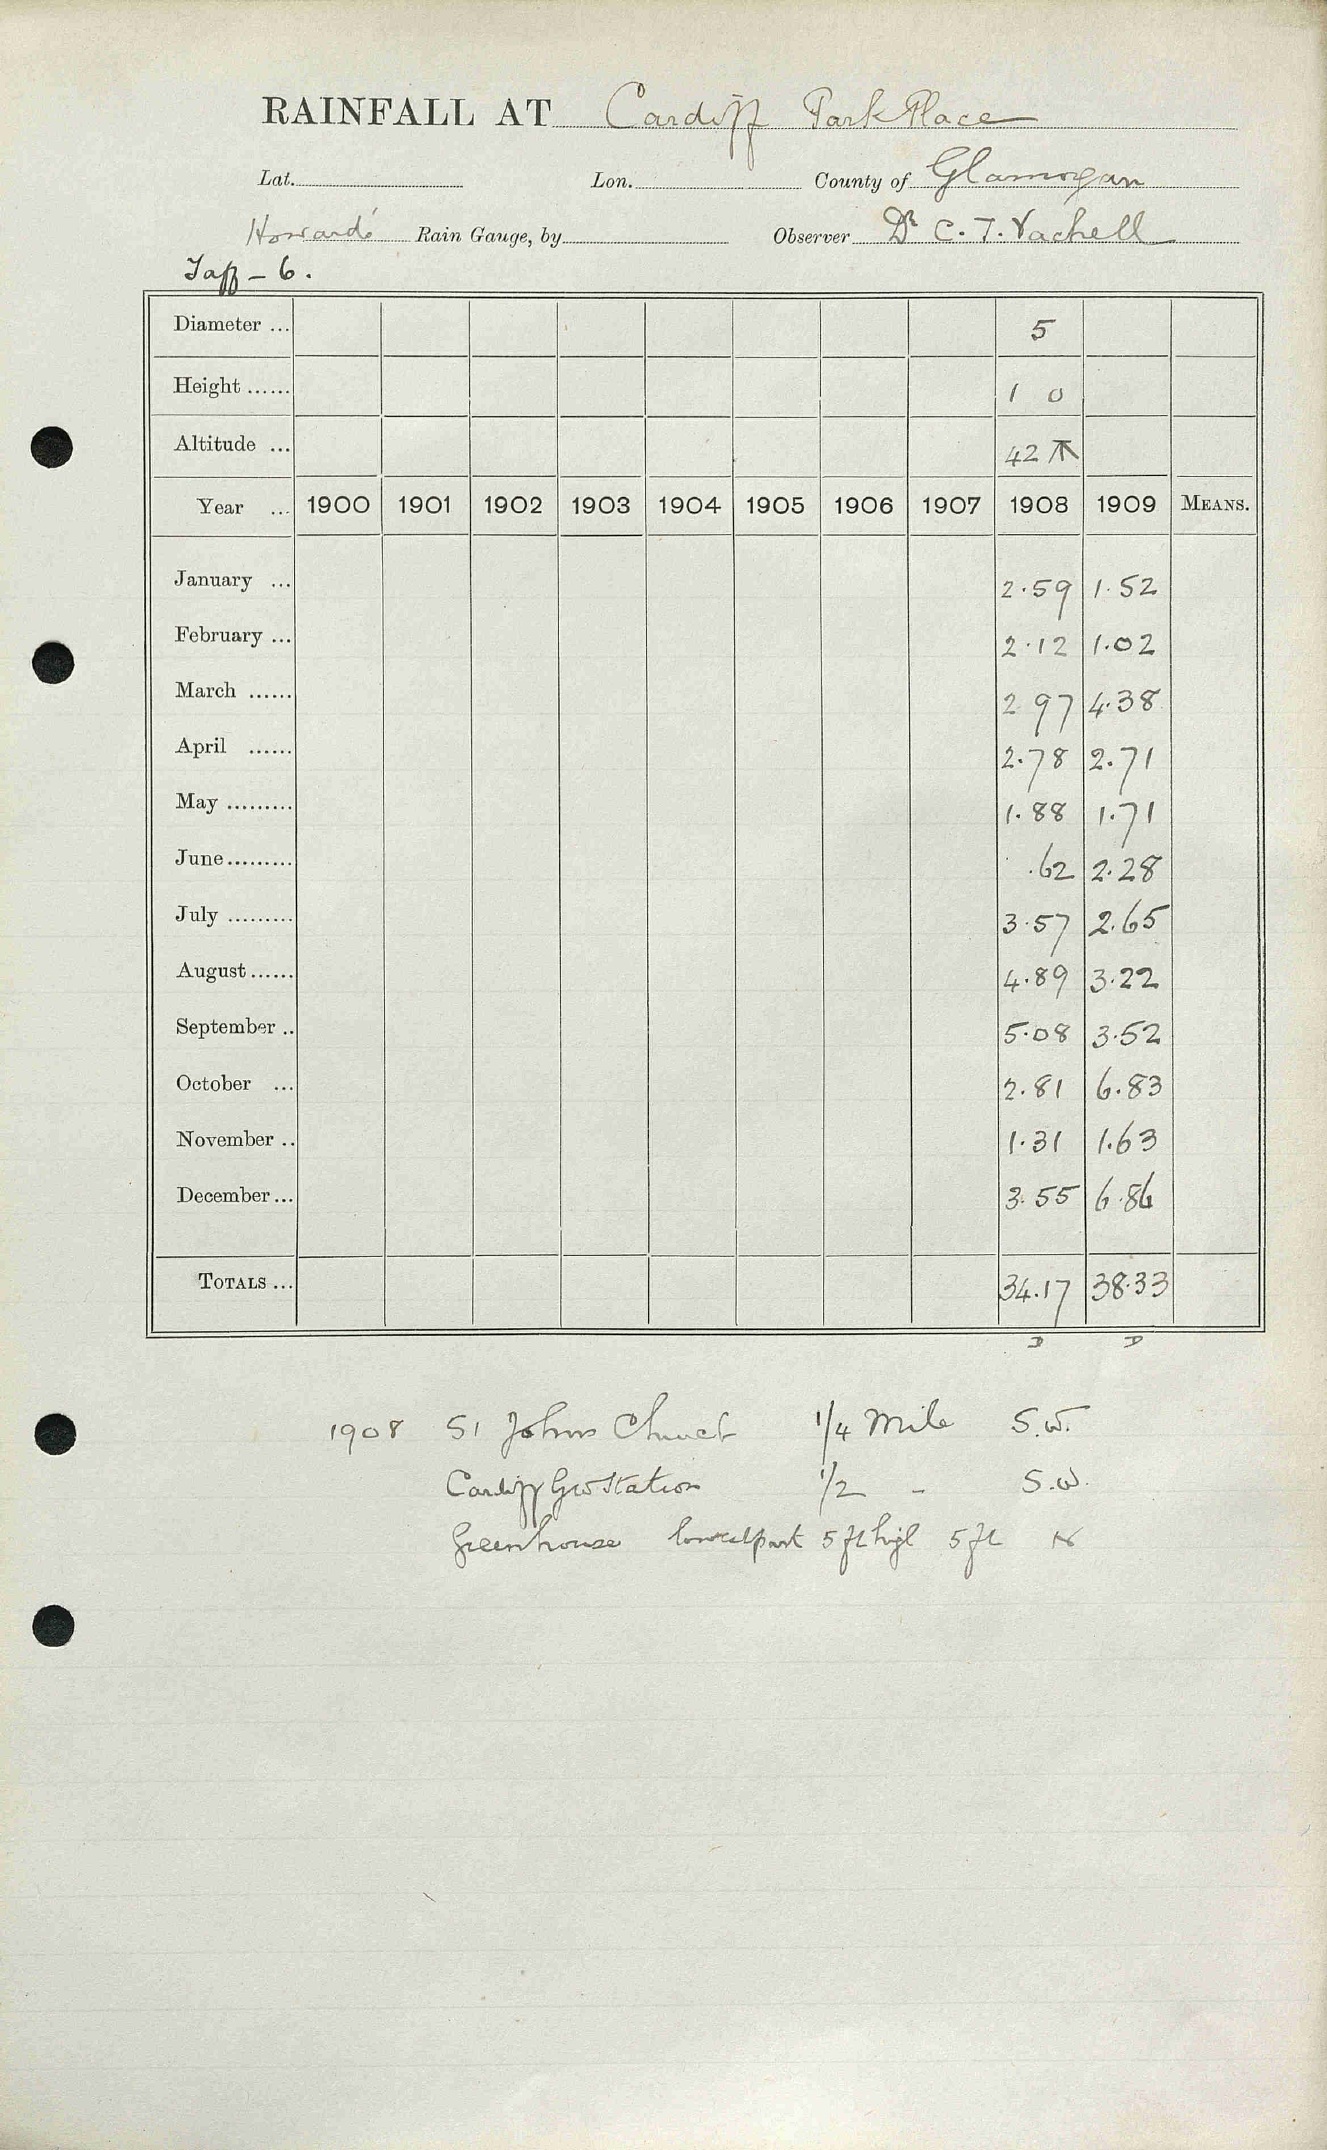 RAINFALL AT Cardiff Park Place
Lat. Lon. County of Glamorgan
Howard's Rain Gauge, by Observer Dr C. T. Vachell
Taff - 6.
Diameter ... 5
Height ...... 1 0
Altitude ... 42
Year ... 1900 1901 1902 1903 1904 1905 1906 1907 1908 1909 MEANS.
January ... 2.59 1.52
February ... 2.12 1.02
March ...... 2.97 4.38
April ...... 2.78 2.71
May ......... 1.88 1.71
June ......... .62 2.28
July ......... 3.57 2.65
August ...... 4.89 3.22
September .. 5.08 3.52
October ... 2.81 6.83
November .. 1.31 1.63
December ... 3.55 6.86
TOTALS ... 34.17 38.33
1908 St Johns Church 1/4 Mile S.W.
Cardiff GW Station 1/2 - S.W.
Greenhouse lowest part 5 ft high 5 ft N